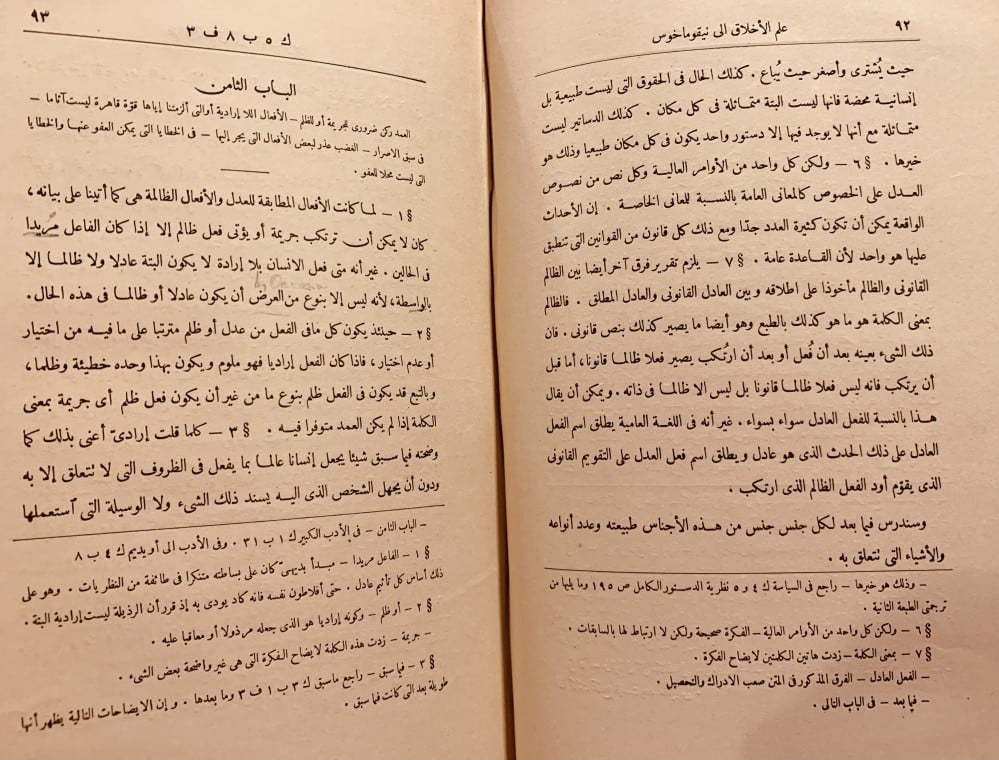 ٩٢
علم الأخلاق الى نيقوماخوس
حيث يُشترى وأصغر حيث يُباع . كذلك الحال فى الحقوق التى ليست طبيعية بل
إنسانية محضة فانها ليست البتة متماثلة فى كل مكان . كذلك الدساتير ليست
متماثلة مع أنها لا يوجد فيها إلا دستور واحد يكون فى كل مكان طبيعيا وذلك هو
خيرها . § ٦ – ولكن كل واحد من الأوامر العالية وكل نص من نصوص
العدل على الخصوص كالمعانى العامة بالنسبة للمعانى الخاصة . إن الأحداث
الواقعة يمكن أن تكون كثيرة العدد جدّا ومع ذلك كل قانون من القوانين التى تنطبق
عليها هو واحد لأن القاعدة عامة . § ٧ – يلزم تقرير فرق آخر أيضا بين الظالم
القانونى والظالم مأخوذا على اطلاقه وبين العادل القانونى والعادل المطلق . فالظالم
بمعنى الكلمة هو ما هو كذلك بالطبع وهو أيضا ما يصير كذلك بنص قانونى . فان
ذلك الشىء بعينه بعد أن فُعل أو بعد أن ارتُكب يصير فعلا ظالما قانونا، أما قبل
أن يرتكب فانه ليس فعلا ظالما قانونا بل ليس الا ظالما فى ذاته . ويمكن أن يقال
هذا بالنسبة للفعل العادل سواء بسواء . غير أنه فى اللغة العامية يطلق اسم الفعل
العادل على ذلك الحدث الذى هو عادل ويطلق اسم فعل العدل على التقويم القانونى
الذى يقوّم أود الفعل الظالم الذى ارتكب .
وسندرس فيما بعد لكل جنس جنس من هذه الأجناس طبيعته وعدد أنواعه
والأشياء التى تتعلق به .
– وذلك هو خيرها – راجع فى السياسة ك ٤ و ٥ نظرية الدستور الكامل ص ١٩٥ وما يليها من
ترجمتى الطبعة الثانية .
§ ٦ – ولكن كل واحد من الأوامر العالية – الفكرة صحيحة ولكن لا ارتباط لها بالسابقات .
§ ٧ – بمعنى الكلمة – زدت هاتين الكلمتين لايضاح الفكرة .
– الفعل العادل – الفرق المذكور فى المتن صعب الادراك والتحصيل .
– فيما بعد – فى الباب التالى .
٩٣
ك ٥ ب ٨ ف ٣
الباب الثامن
العمد ركن ضرورى للجريمة أو للظلم – الأفعال اللا إرادية أو التى ألزمتنا إياها قوّة قاهرة ليست آثاما –
فى سبق الاصرار – الغضب عذر لبعض الأفعال التى يجر إليها – فى الخطايا التى يمكن العفو عنها والخطايا
التى ليست محلا للعفو .
§ ١ – لما كانت الأفعال المطابقة للعدل والأفعال الظالمة هى كما أتينا على بيانه ،
كان لا يمكن أن ترتكب جريمة أو يؤتى فعل ظالم إلا إذا كان الفاعل مريدا
فى الحالين . غير أنه متى فعل الانسان بلا إرادة لا يكون البتة عادلا ولا ظالما إلا
بالواسطة، لأنه ليس إلا بنوع من العرض أن يكون عادلا أو ظالما فى هذه الحال .
§ ٢ – حينئذ يكون كل ما فى الفعل من عدل أو ظلم مترتبا على ما فيه من اختيار
أو عدم اختيار ، فاذا كان الفعل إراديا فهو ملوم ويكون بهذا وحده خطيئة وظلما ،
وبالتبع قد يكون فى الفعل ظلم بنوع ما من غير أن يكون فعل ظلم أى جريمة بمعنى
الكلمة إذا لم يكن العمد متوفرا فيه . § ٣ – كلما قلت إرادىّ أعنى بذلك كما
وضحته فيما سبق شيئا يجعل إنسانا عالما بما يفعل فى الظروف التى لا تتعلق إلا به
ودون أن يجهل الشخص الذى اليه يسند ذلك الشىء ولا الوسيلة التى استعملها
– الباب الثامن – فى الأدب الكبير ك ١ ب ٣١ . وفى الأدب الى أويديم ك ٤ ب ٨
§ ١ – الفاعل مريدا – مبدأ بديهىّ كان على بساطته متنكرا فى طائفة من النظريات . وهو على
ذلك أساس كل تأثيم عادل . حتى أفلاطون نفسه فانه كاد يودى به إذ قرر أن الرذيلة ليست إرادية البتة .
§ ٢ – أو ظلم – وكونه إراديا هو الذى جعله مرذولا أو معاقبا عليه .
– جريمة – زدت هذه الكلمة لايضاح الفكرة التى هى غير واضحة بعض الشىء .
§ ٣ – فيما سبق – راجع ما سبق ك ٣ ب ١ ف ٣ وما بعدها . وإن الايضاحات التالية يظهر أنها
طويلة بعد التى كانت فيما سبق .